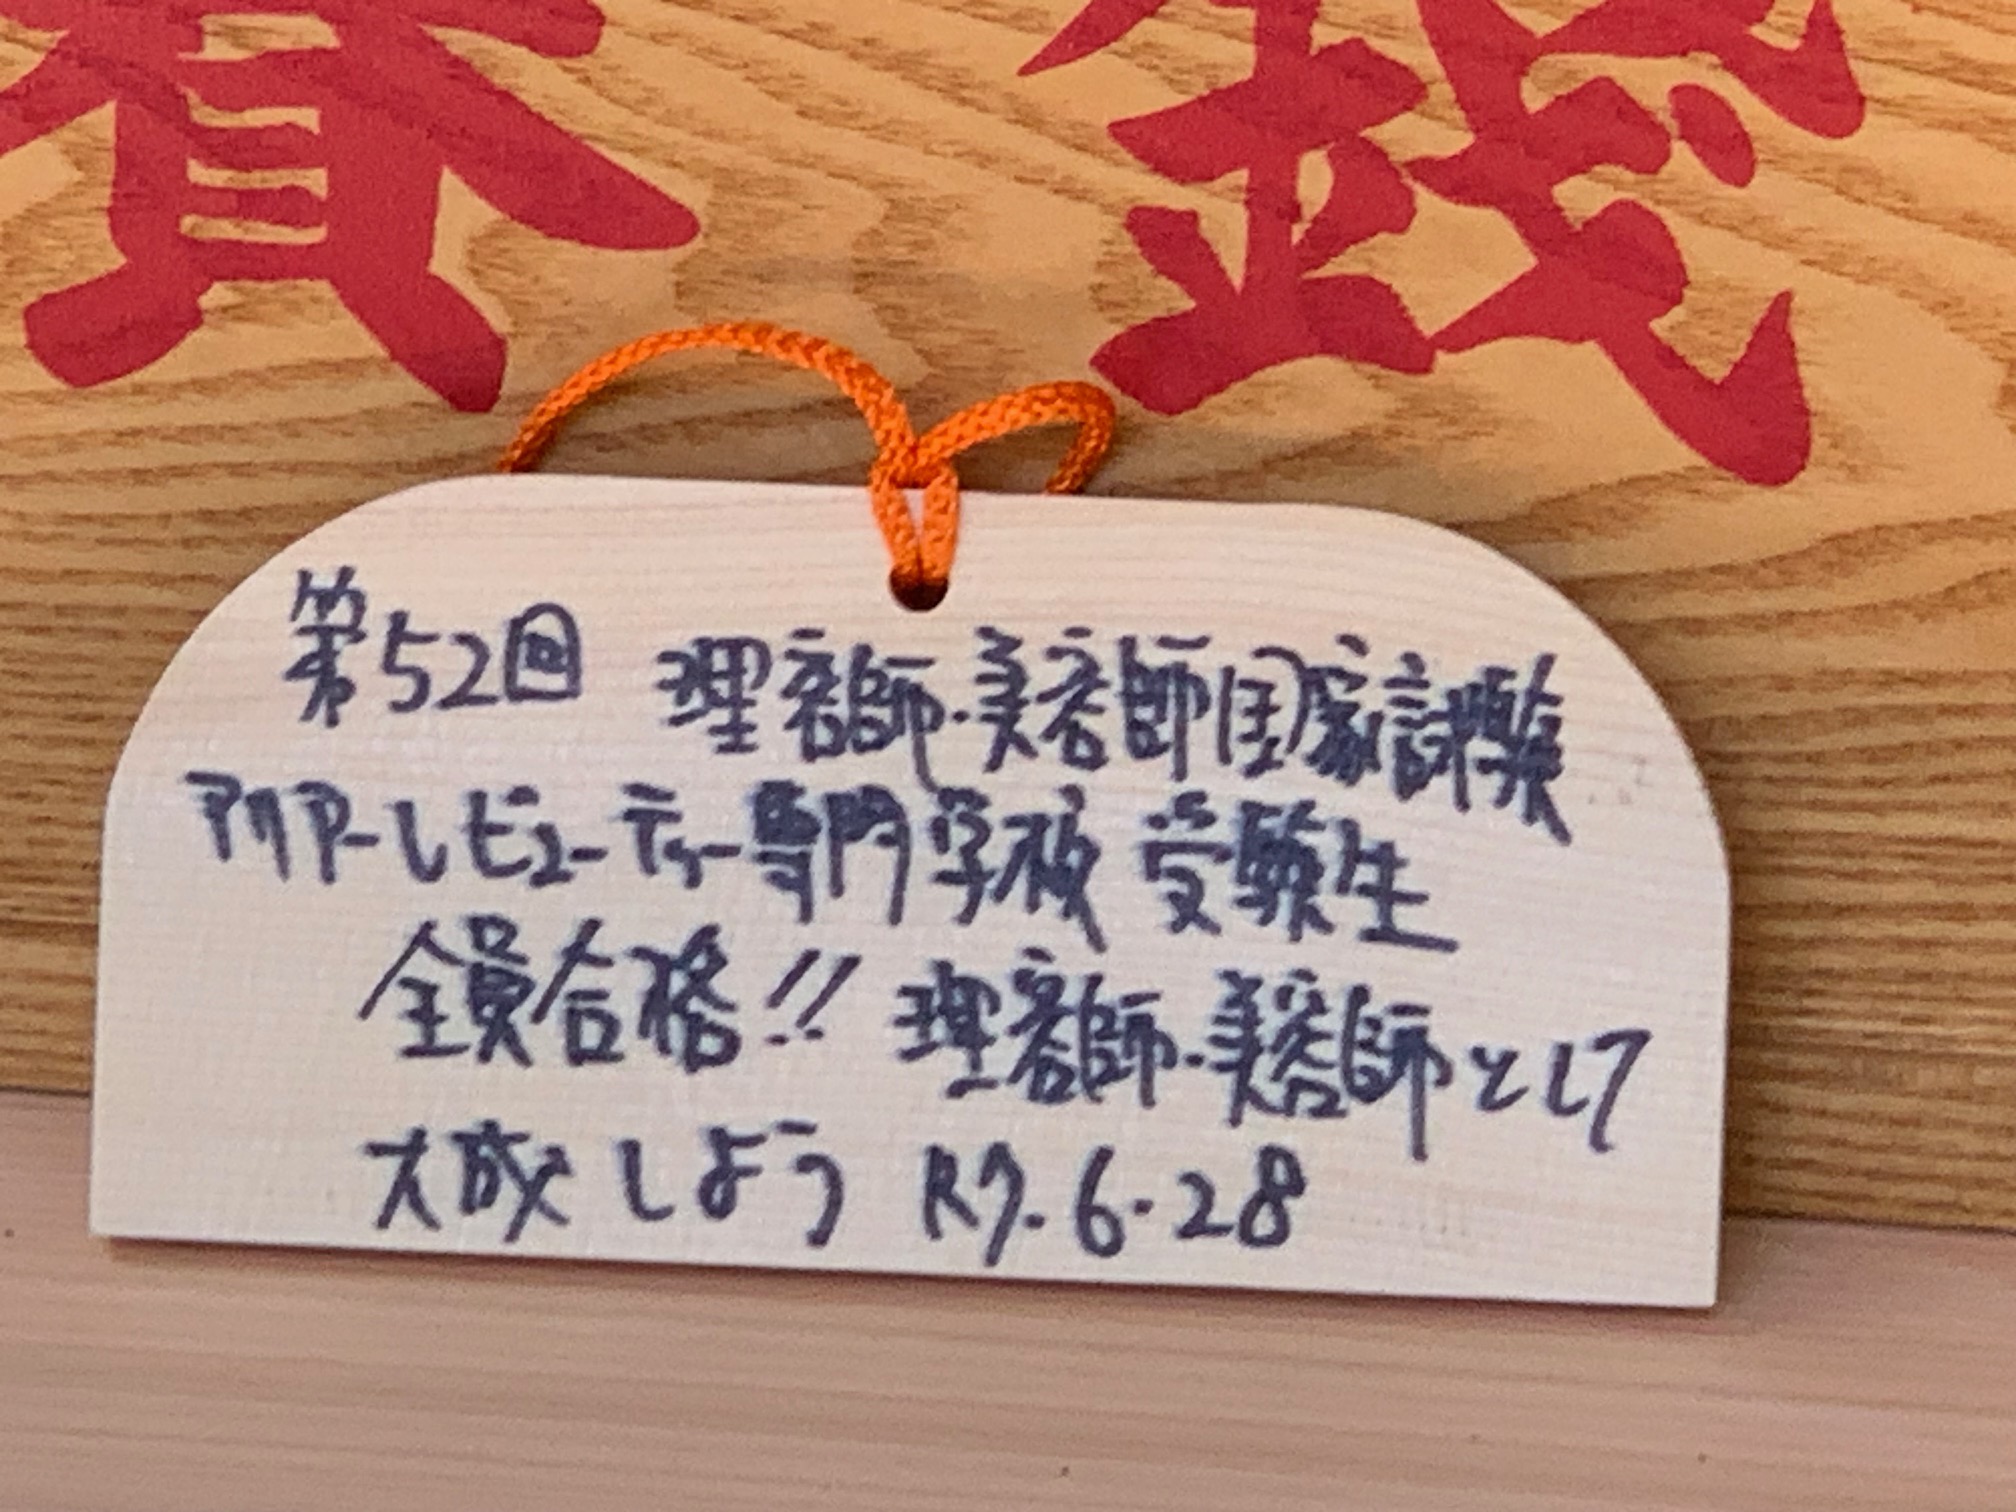 賽 銭
第52回 理容師・美容師国家試験
アリアーレビューティー専門学校 受験生
全員合格!! 理容師・美容師として
大成しよう R7.6.28